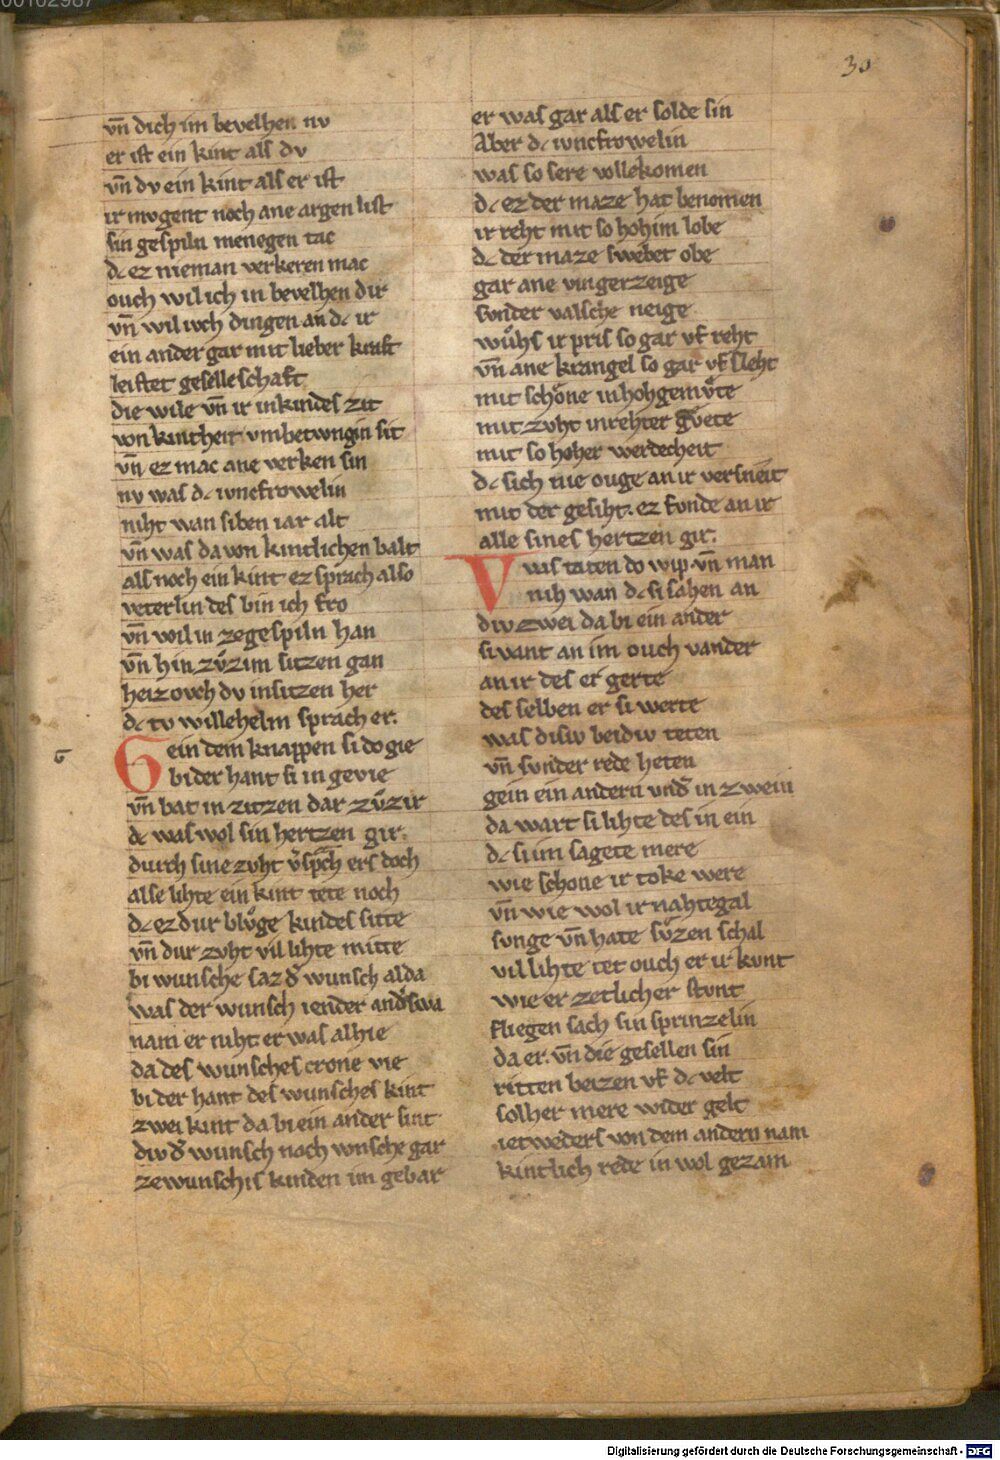 00102987
30
vn̄ dich im bevelhen nv
er ist ein kint als dv
vn̄ dv ein kint als er ist
ir mvgent noch ane argen list
sin gespiln menegen tac
dc ez nieman verkeren mac
ouch wil ich in bevelhen dir
vn̄ wil ivch dingen an dc ir
ein ander gar mit lieber kraft
leistet geselleschaft
die wile vn̄ ir in kindes zit
von kintheit vmbetwngin sit
vn̄ ez mac ane verken sin
nv was dc iuncfrowelin
niht wan siben iar alt
vn̄ was da von kintlichen balt
als noch ein kint ez sprach also
veterlin des bin ich fro
vn̄ wil in ze gespiln han
vn̄ hin zv̊zim sitzen gan
heiz ovch dv in sitzen her
dc tv willehelm sprach er.
G
Gein dem knappen si do gie
bi der hant si in gevie
vn̄ bat in zitzen dar zv̊zir
dc was wol sin hertzen gir.
durch sine zvht v̓sprach ers doch
alse lihte ein kint tete noch
dc ez dur blv̊ge kindes sitte
vn̄ dur zvht vil lihte mitte
bi wunsche saz d̓ wunsch alda
was der wunsch iender and̓swa
nain er niht er was alhie
da des wunsches crone vie
bi der hant des wunsches kint
zwei kint da bi ein ander sint
div d̓ wunsch noch wnsche gar
ze wunschis kinden im gebar
er was gar als er solde sin
Aber dc iuncfrowelin
was so sere vollekomen
dc ez der maze hat benomen
ir reht mit so hohim lobe
dc der maze swebet obe
gar ane vingerzeige
svnder valsche neige
wv̊hs ir pris so gar vf reht
vn̄ ane krangel so gar vf sleht
mit schone in hohgemv̊te
mit zvht in rehter gv̊ete
mit so hoher werdecheit
dc sich nie ouge an ir versneit
mit der gesiht. ez fvnde an ir
alle sines hertzen gir.
Vvas taten do wip vn̄ man
nih wan dc si sahen an
div zwei da bi ein ander
si vant an im ouch vander
an ir des er gerte
des selben er si werte
was disiv beidiv teten
vn̄ svnder rede heten
gein ein andern vnd̓ in zwein
da wart si lihte des in ein
dc si im sagete mere
wie schone ir toke were
vn̄ wie wol ir nahtegal
svnge vn̄ hate sv̊zen schal
vil lihte tet ouch er ir kvnt
wie er zetlicher stvnt
fliegen sach sin sprinzelin
da er. vn̄ die gesellen sin
ritten beizen vf dc velt
solher mere wider gelt
ietweders von dem andern nam
kintlich rede in wol gezam
Digitalisierung gefördert durch die Deutsche Forschungsgemeinschaft - DFG